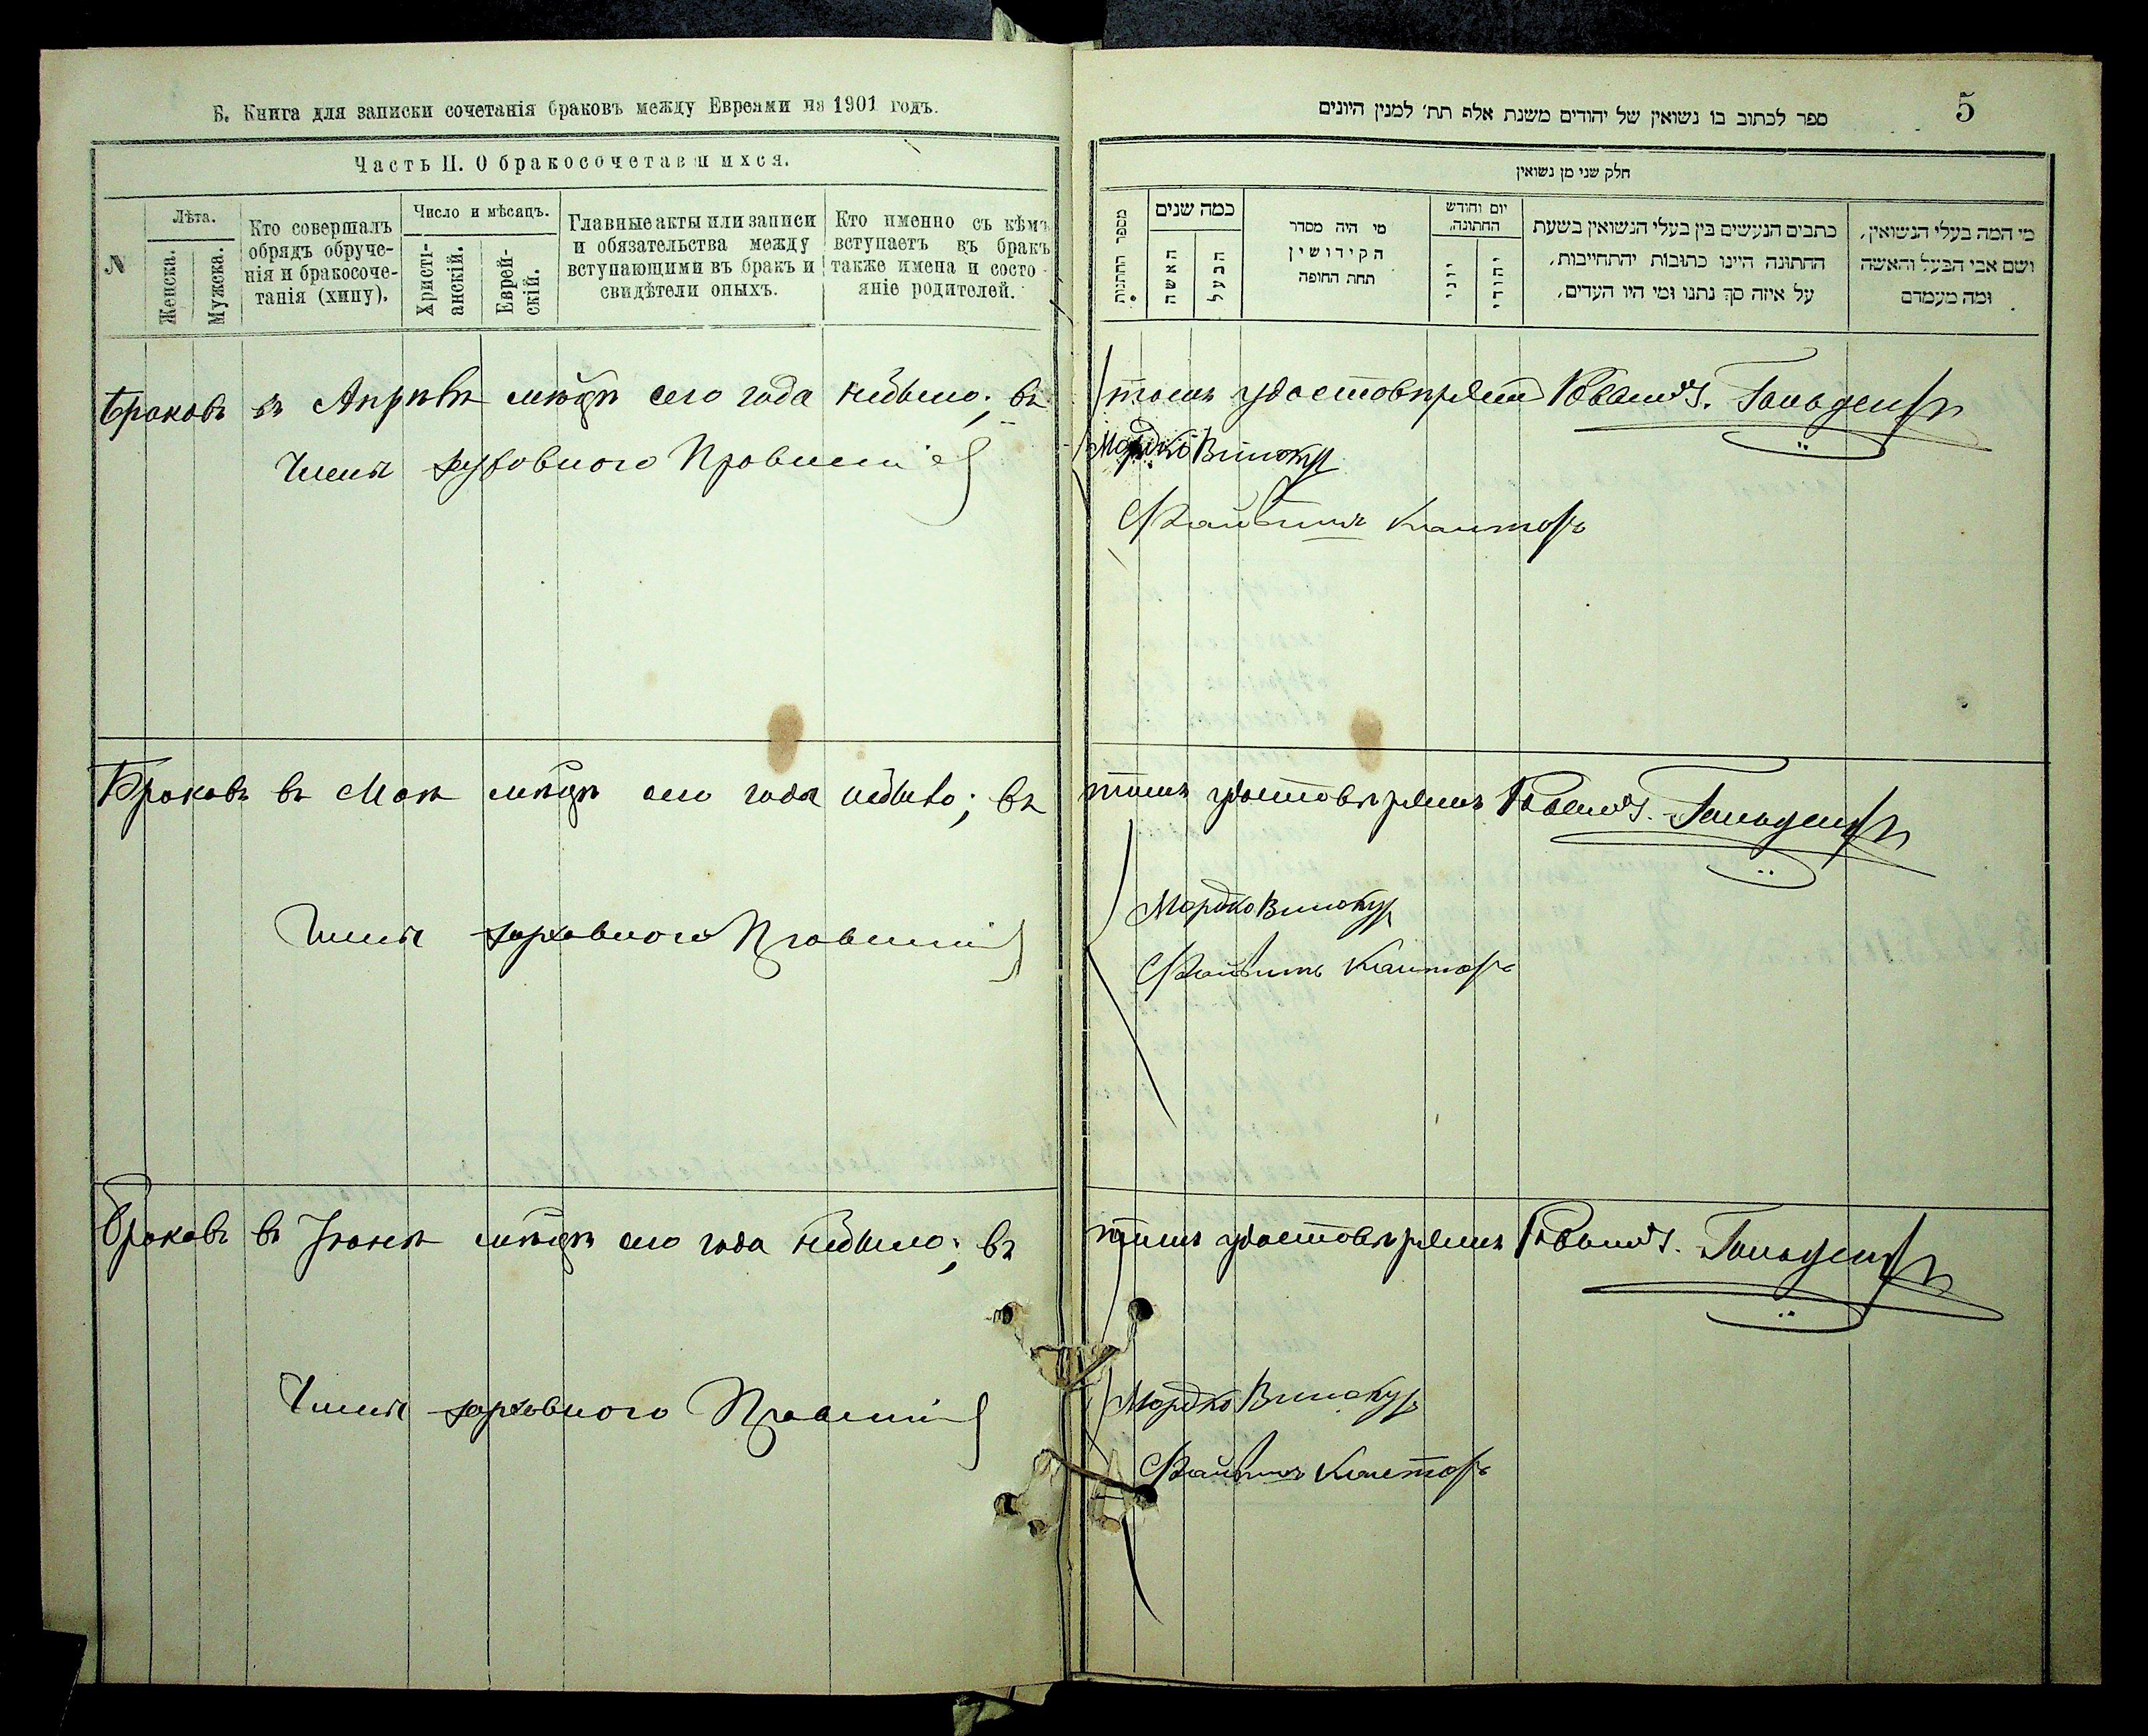 Б. Книга для записки сочетанія браковъ между Евреями на 1901 годъ.
Часть II. О бракосочетавшихся.
N
Лѣта.
Женска.
Мужеска.
Кто совершалъ
обрядъ обруче-
нія и бракосоче-
танія (хипу).
Число и мѣсяцъ.
Христі-
анскій.
Еврей-
скій.
Главные акты или записи
и обязательства между
вступающими въ бракъ и
свидѣтели оныхъ.
Кто именно съ кѣмъ
вступаетъ въ бракъ
также имена и состо-
яніе родителей.
Браковъ въ Апрѣлѣ мѣсяцѣ сего года небыло; въ
Члены духовного Правленія
Браковъ въ Маѣ мѣсяцѣ сего года небыло; въ
Члены духовного Правленія
Браковъ въ Іюнѣ мѣсяцѣ сего года небыло; въ
Члены духовного Правленія
5
ספר לכתוב בו נשואין של יהודים משנת אלף תת׳ למנין היונים
חלק שני מן נשואין
מספר החתונות
כמה שנים
האשה
הבעל
מי היה מסדר
הקידושין
תחת החופה
יום וחודש
החתונה.
יוני
יהודי
כתבים הנעשים בין בעלי הנשואין בשעת
החתונה היינו כתובות יהתחייבות,
על איזה סך נתנו ומי היו העדים,
מי המה בעלי הנשואין,
ושם אבי הבעל והאשה
ומה מעמדם
томъ удостовѣряетъ Раввинъ
Мордко Винокур
Канторъ
томъ удостовѣряетъ Раввинъ
Мордко Винокур
Канторъ
томъ удостовѣряетъ Раввинъ
Мордко Винокур
Канторъ